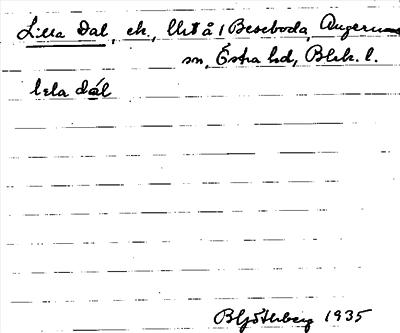 Lilla Dal, ek., Utå, Beseboda, Augerums
sn, Östra hd, Blek. l.
lɩla dál
B Götherberg 1935